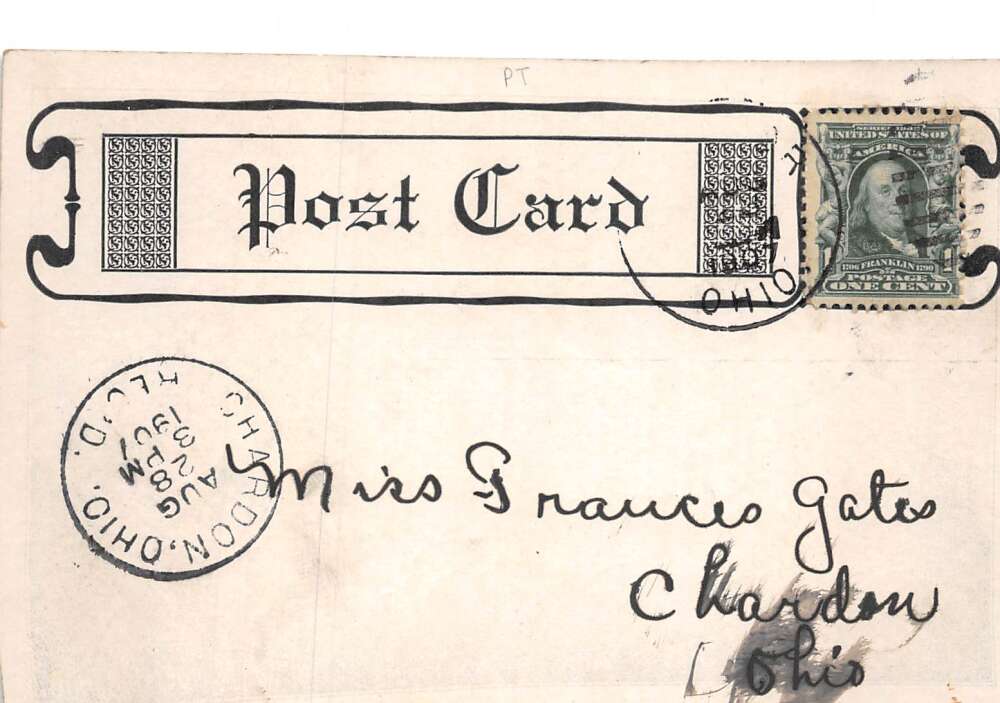 PT
Post Card
SERIES 1902
UNITED STATES OF
AMERICA
1706 FRANKLIN 1790
POSTAGE
ONE CENT
OHIO
1907
CHARDON, OHIO.
AUG
28
3 PM
1907
REC'D.
Miss Frances Gates
Chardon
Ohio